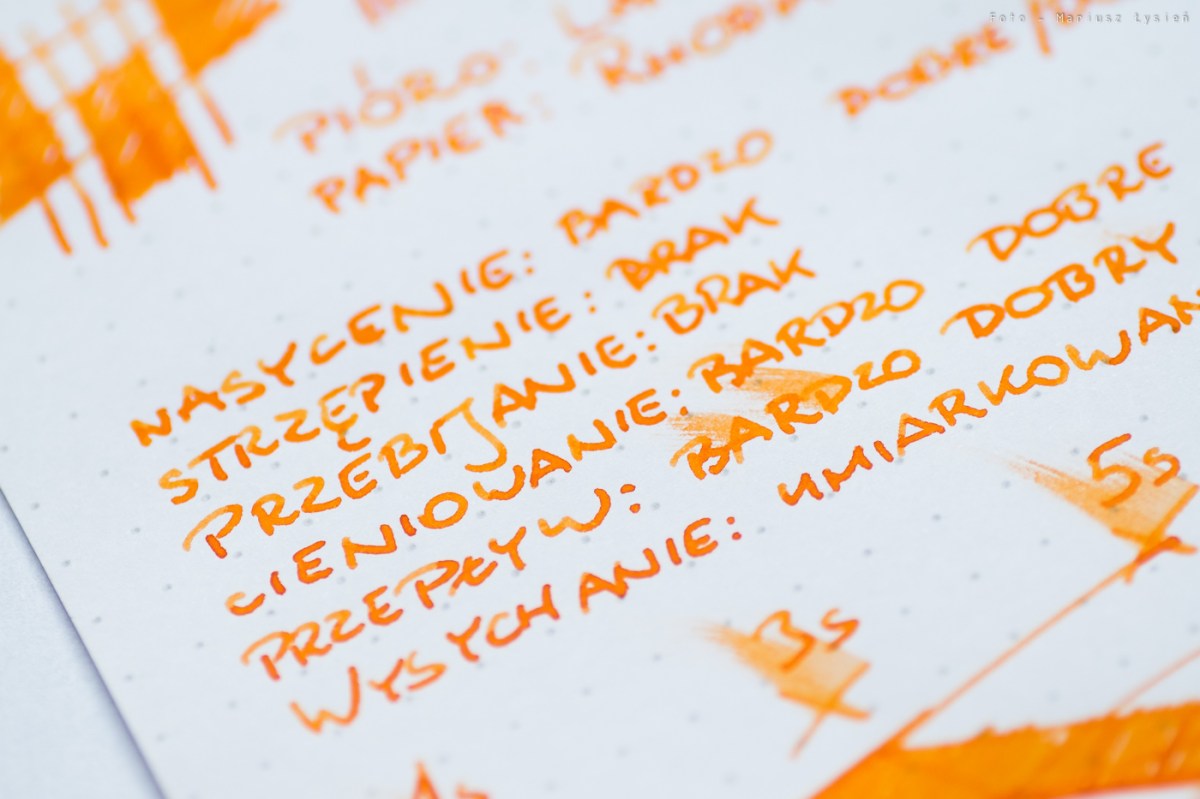 Foto - Mariusz Łysień
PIÓRO:
PAPIER:
NASYCENIE: BARDZO DOBRE
STRZĘPIENIE: BRAK
PRZEBIJANIE: BRAK
CIENIOWANIE: BARDZO DOBRE
PRZEPŁYW: BARDZO DOBRY
WYSYCHANIE:
5s
3s